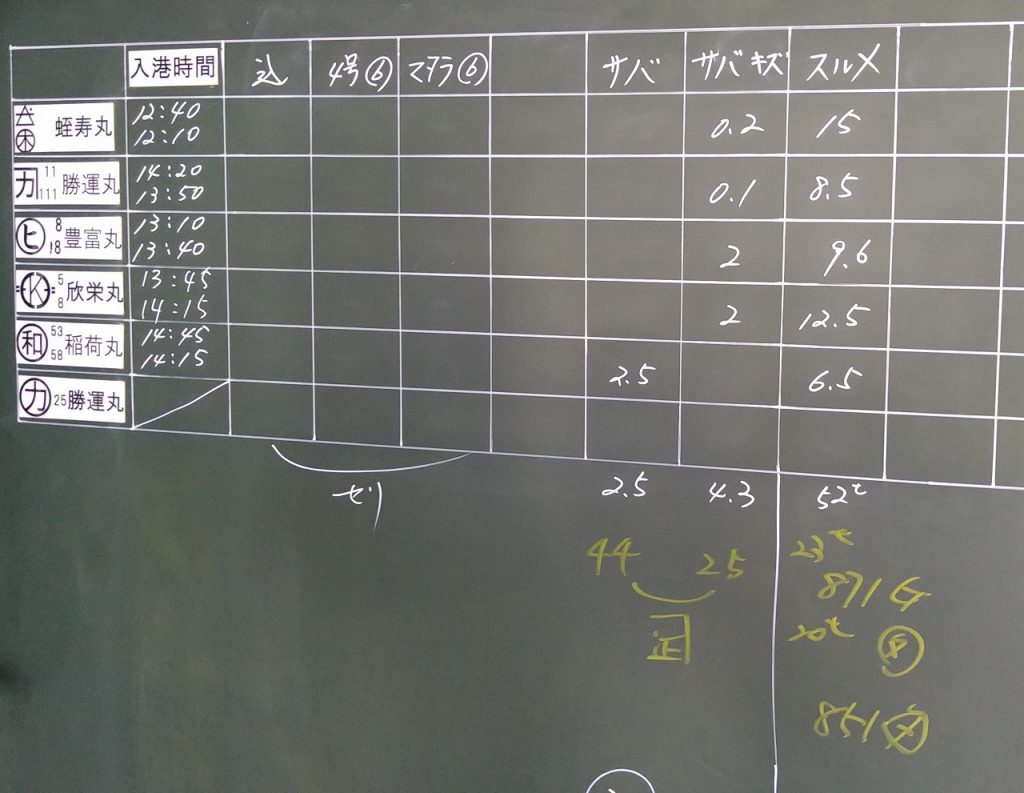 入港時間 込 4号⑥ マダラ⑥ サバ サバキズ スルメ
蛭寿丸 12:40 12:10 0.2 15
カ 11 111 勝運丸 14:20 13:50 0.1 8.5
ヒ 8 18 豊富丸 13:10 13:40 2 9.6
K 5 8 欣栄丸 13:45 14:15 2 12.5
和 53 58 稲荷丸 14:45 14:15 2.5 6.5
カ 25 勝運丸
セリ 2.5 4.3 52t
44 25 23t
871
正 20t
851